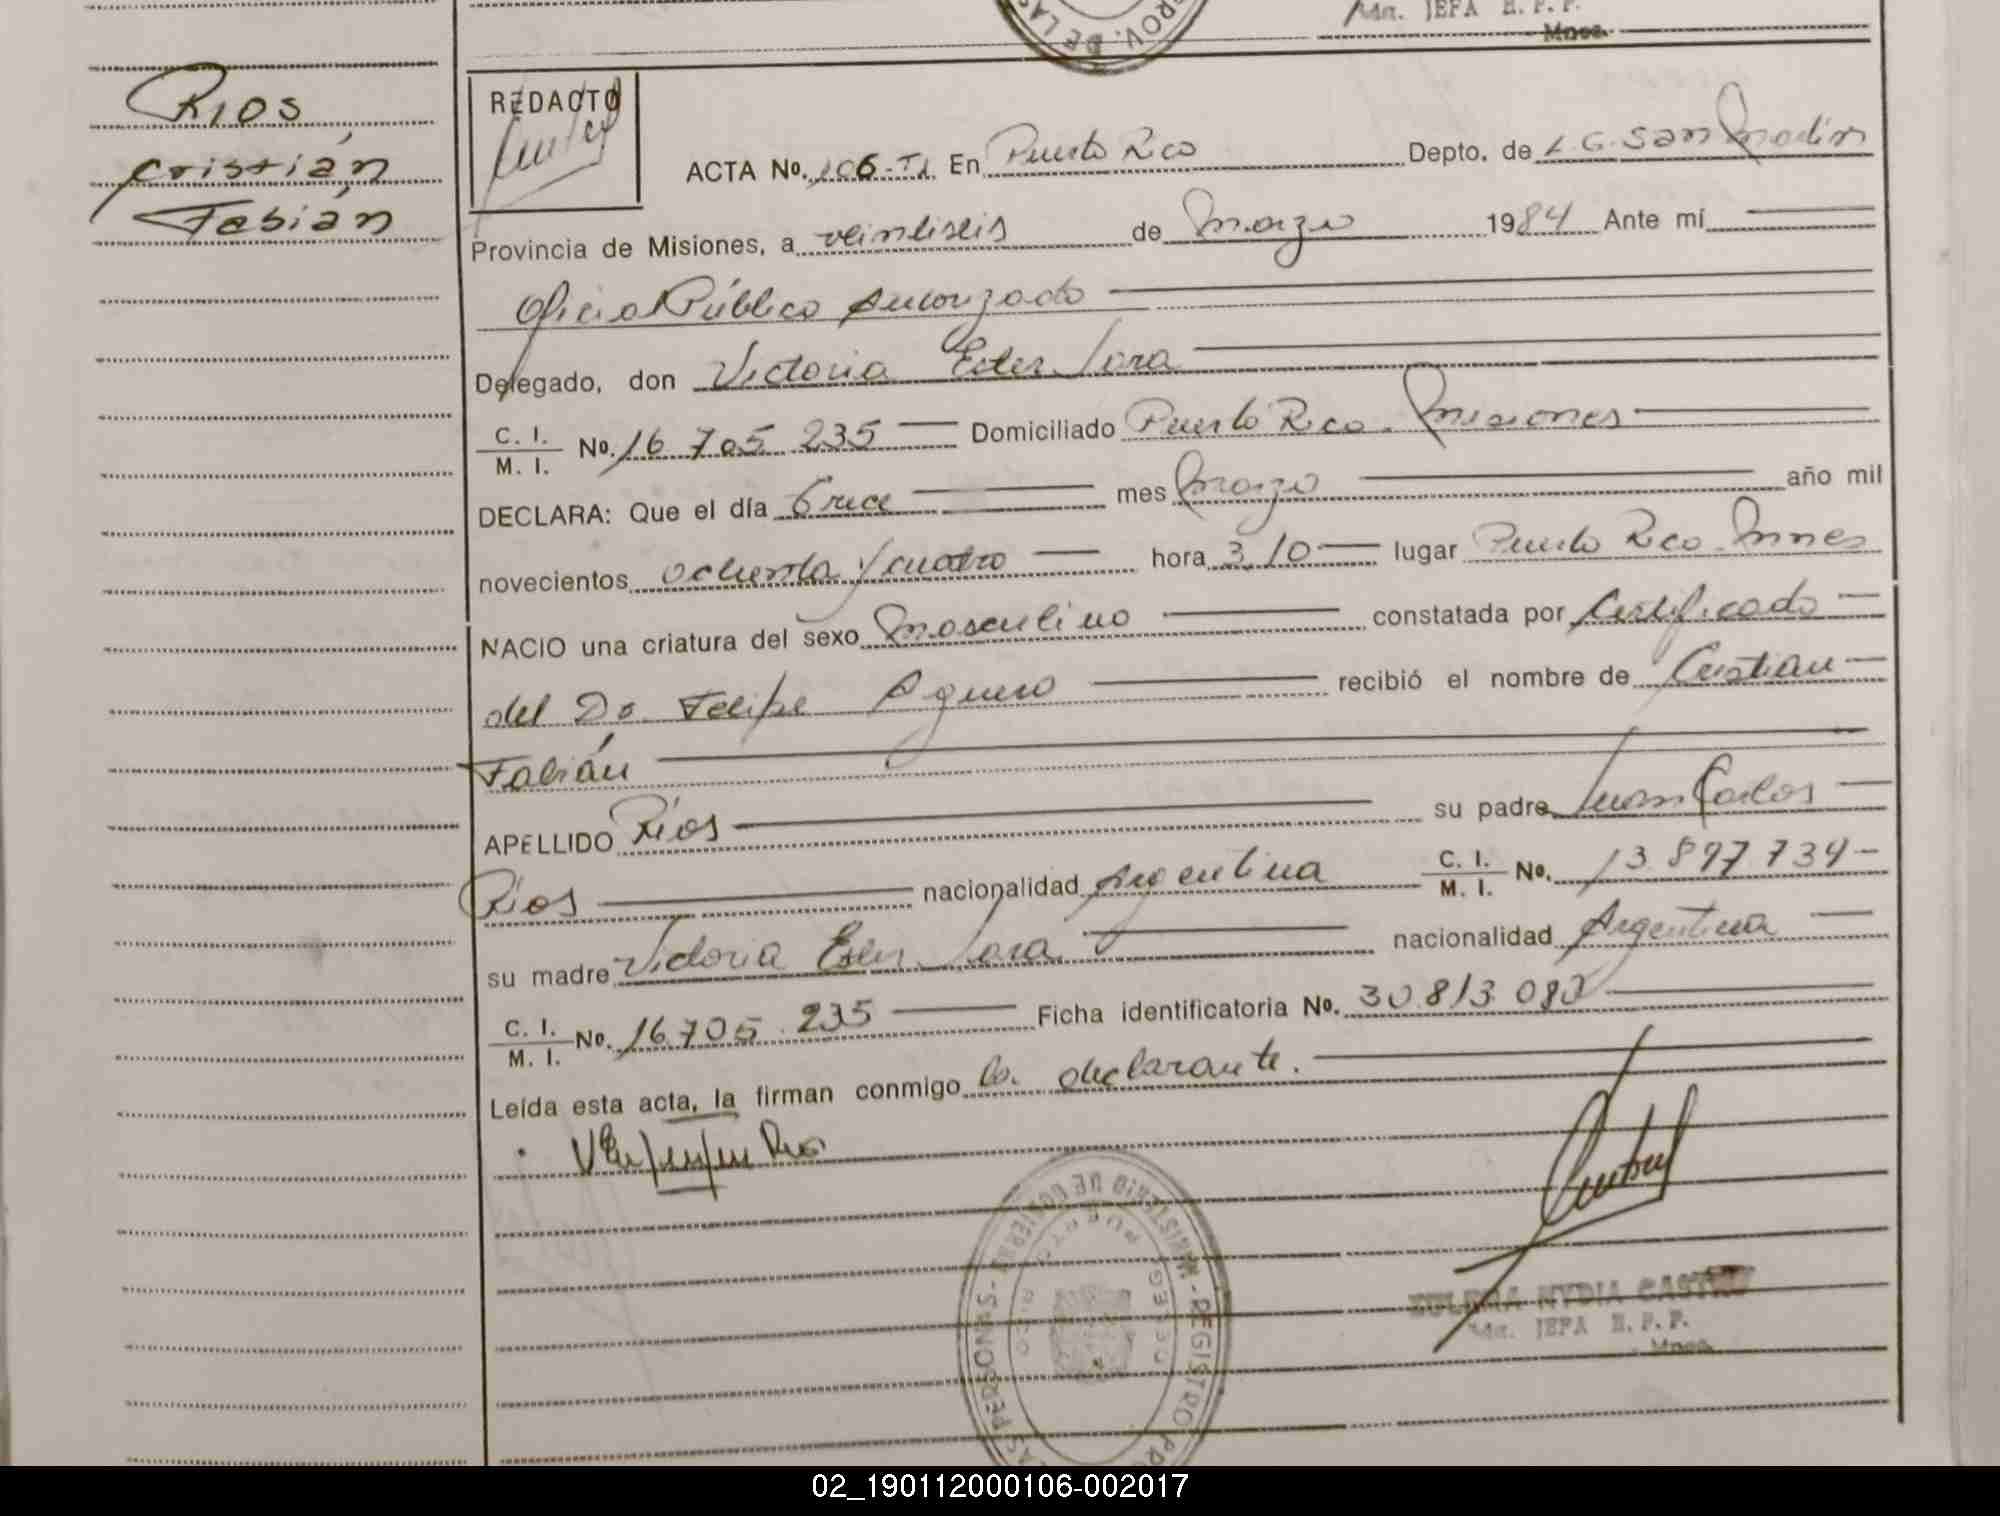 Adm. JEFA R. P. P.
Mnes.
PROV. DE LAS
RIOS
Cristián
Fabián
REDACTO
ACTA No. 106-T1 En Puerto Rico Depto. de L.G. San Martín
Provincia de Misiones, a veintiseis de Marzo 1984 Ante mí
Oficial Público Autorizado
Delegado, don Victoria Ester Jara
C. I. / M. I. No. 16 705 235 Domiciliado Puerto Rico. Misiones
DECLARA: Que el día trece mes Marzo año mil
novecientos ochenta y cuatro hora 3,10 lugar Puerto Rico. Mnes
NACIO una criatura del sexo Masculino constatada por Certificado
del Dr. Felipe Aguero recibió el nombre de Cristian
Fabián
APELLIDO Ríos su padre Juan Carlos
Ríos nacionalidad Argentina C. I. / M. I. No. 13 897 734
su madre Victoria Ester Jara nacionalidad Argentina
C. I. / M. I. No. 16705.235 Ficha identificatoria No. 30 813 080
Leída esta acta, la firman conmigo la declarante.
MINISTERIO DE GOBIERNO - REGISTRO PRO LAS PERSONAS
PUERTO RICO
EULERIA NYDIA CASTRO
Adm. JEFA R. P. P.
Mnes.
02_190112000106-002017